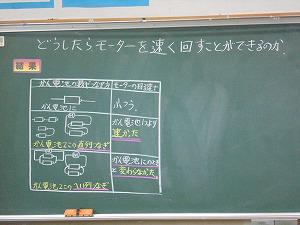 どうしたらモーターを速く回すことができるのか。
結果
かん電池の数とつなぎ方 モーターの回る速さ
かん電池1こ ふつう。
かん電池1こより
速かった
かん電池2この直列つなぎ
かん電池1このとき
と変わらなかった。
かん電池2このへい列つなぎ